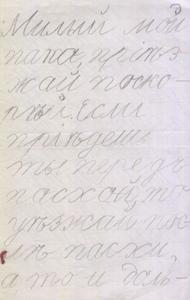 Милый мой
папа, пріѣз
жай поско-
рѣй. Если
пріѣдешь
ты передъ
пасхой, то
уѣзжай пос
лѣ пасхи,
а то и даль-